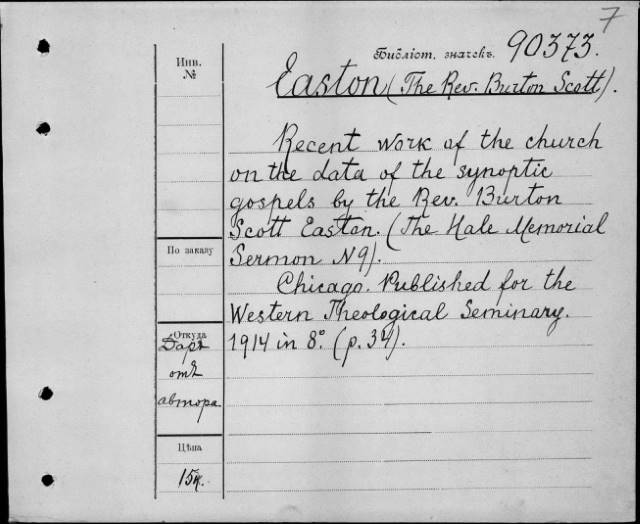 7
Инв.
№
Библіот. значекъ. 90373.
Easton (The Rev. Burton Scott).
Recent work of the church
on the data of the synoptic
gospels by the Rev. Burton
Scott Easton. (The Hale Memorial
Sermon N9).
По заказу
Chicago. Published for the
Western Theological Seminary.
1914 in 8º. (p. 34).
Откуда
Даръ
отъ
автора
Цѣна
15к.